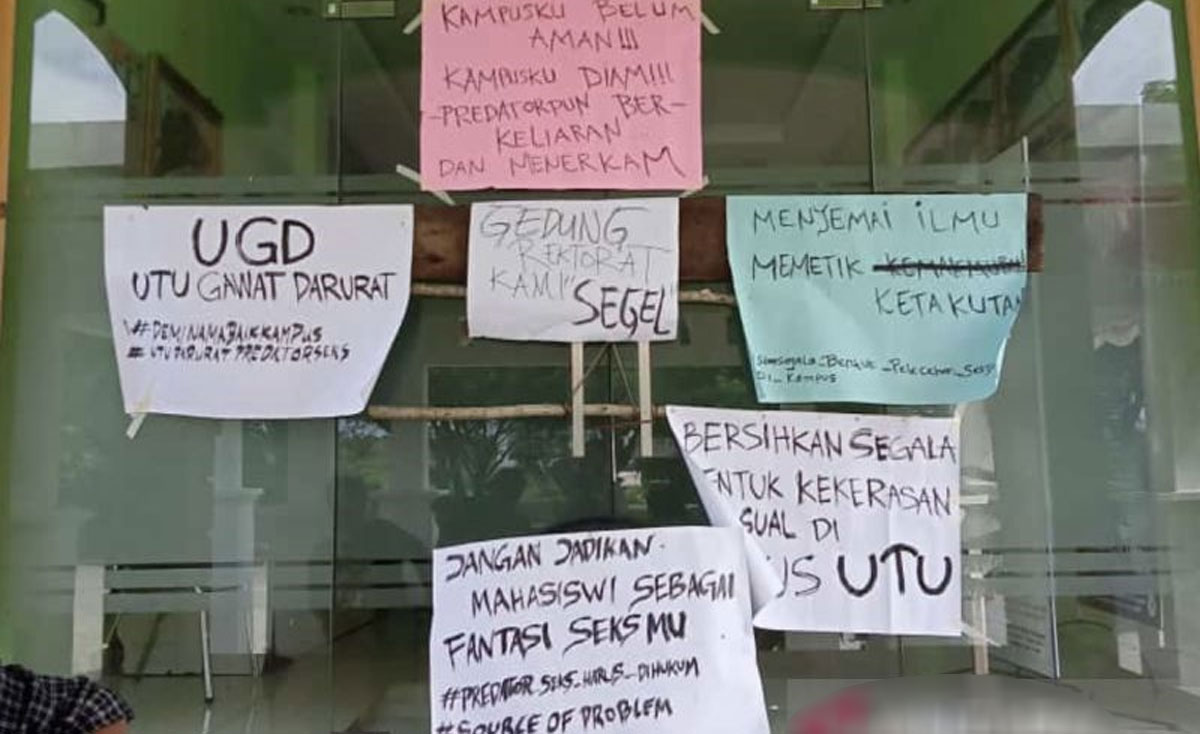 KAMPUSKU BELUM
AMAN!!!
KAMPUSKU DIAM!!!
-PREDATORPUN BER-
KELIARAN
DAN MENERKAM
UGD
UTU GAWAT DARURAT
#DEMINAMABAIKKAMPUS
GEDUNG
REKTORAT
KAMI "SEGEL"
MENYEMAI ILMU
MEMETIK
KETAKUTAN
Di_Kampus
BERSIHKAN SEGALA
NTUK KEKERASAN
SUAL DI
US UTU
JANGAN JADIKAN
MAHASISWI SEBAGAI
FANTASI SEKSMU
#PREDATOR_SEKS_HARUS_DIHUKUM
#SOURCE OF PROBLEM